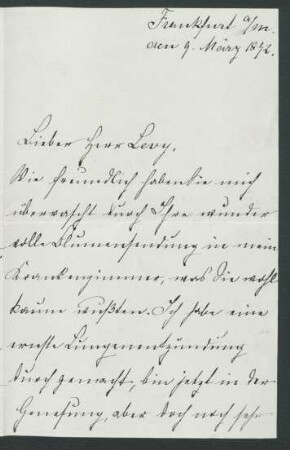 Frankfurt a/m.
den 9. März 1892.
Lieber Herr Levy,
Wie freundlich haben Sie mich
überrascht durch Ihre wunder
volle Blumensendung in mein
Krankenzimmer, was Sie wohl
kaum wußten. Ich habe eine
ernste Lungenentzündung
durch gemacht, bin jetzt in der
Genesung, aber doch noch sehr